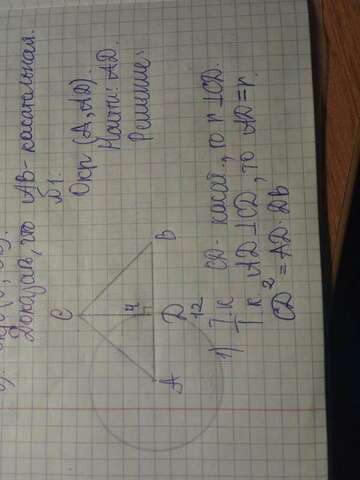 Доказать, что AB - касательная.
д1.
Окр (A, AD)
Найти: AD.
Решение:
C
4
B
A
D
12
1) Т.к CD - касат., то r ⊥ CD.
Т.к AD ⊥ CD, то AD = r.
CD² = AD · DB